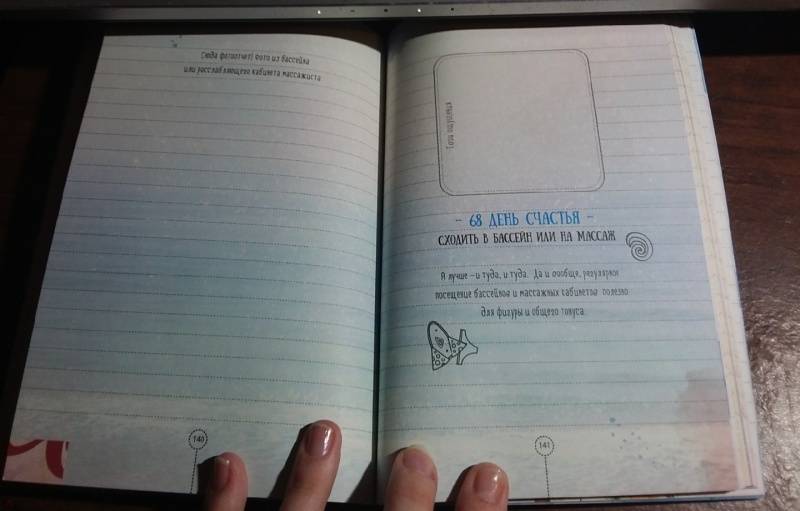 Сюда фотоотчет! Фото из бассейна
или расслабляющего кабинета массажиста
140
- 68 ДЕНЬ СЧАСТЬЯ -
СХОДИТЬ В БАССЕЙН ИЛИ НА МАССАЖ
Я лучше - и туда, и туда. Да и вообще, регулярное
посещение бассейнов и массажных кабинетов полезно
для фигуры и общего тонуса.
141